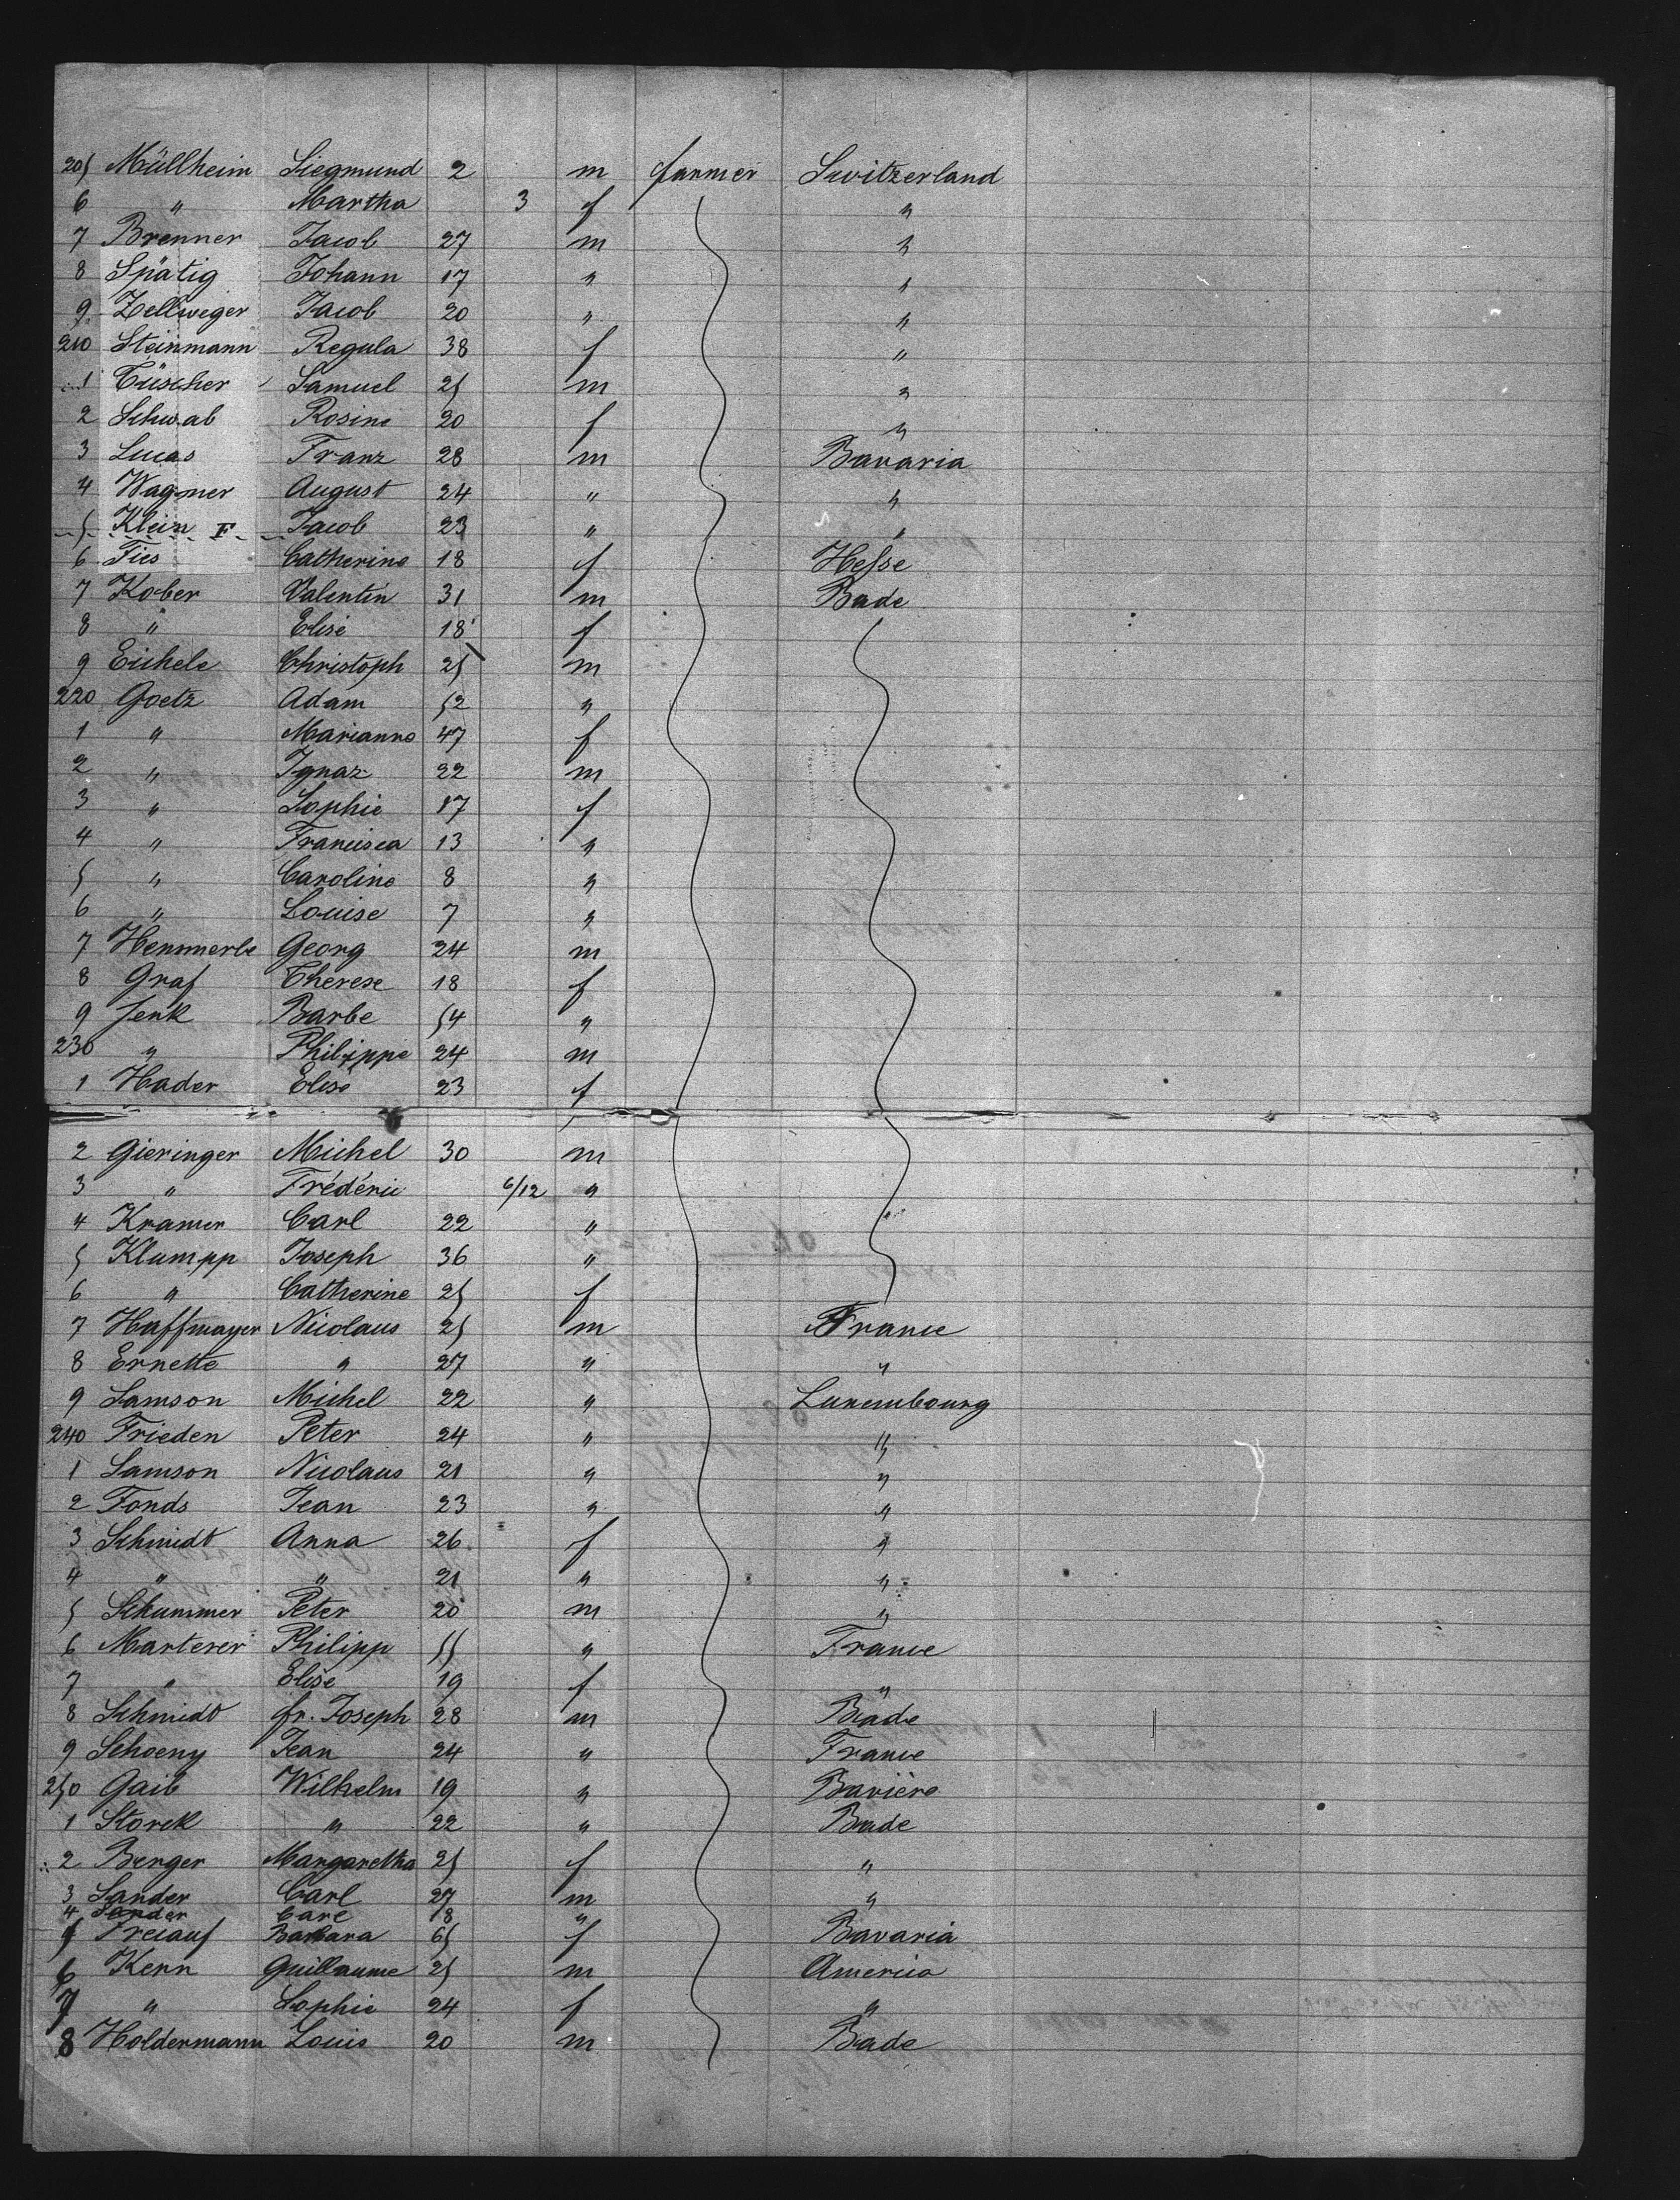 205 Müllheim Siegmund 2 m farmer Switzerland
6 " Martha 3 f "
7 Brenner Jacob 27 m "
8 Spätig Johann 17 " "
9 Zellweger Jacob 20 " "
210 Steinmann Regula 38 f "
1 Tüscher Samuel 25 m "
2 Schwab Rosine 20 f "
3 Lucas Franz 28 m Bavaria
4 Wagner August 24 " "
5 Klein F Jacob 23 " "
6 Fies Catherine 18 f Hesse
7 Kober Valentin 31 m Bade
8 " Elise 18 f
9 Eichele Christoph 25 m
220 Goetz Adam 52 "
1 " Marianne 47 f
2 " Ignaz 22 m
3 " Sophie 17 f
4 " Francisca 13 "
5 " Caroline 8 "
6 " Louise 7 "
7 Hemmerle Georg 24 m
8 Graf Therese 18 f
9 Jenk Barbe 54 "
230 " Philippe 24 m
1 Hader Elise 23 f
2 Gieringer Michel 30 m
3 " Frédéric 6/12 "
4 Kramer Carl 22 "
5 Klumpp Joseph 36 "
6 " Catherine 25 f
7 Haffmayer Nicolaus 25 m France
8 Ernette " 27 " "
9 Samson Michel 22 " Luxembourg
240 Frieden Peter 24 " "
1 Samson Nicolaus 21 " "
2 Fonds Jean 23 " "
3 Schmidt Anna 26 f "
4 " " 21 " "
5 Schummer Peter 20 m "
6 Marterer Philipp 55 " France
7 " Elise 19 f "
8 Schmidt fr. Joseph 28 m Bade
9 Schoeny Jean 24 " France
250 Gaib Wilhelm 19 " Bavière
1 Storck " 22 " Bade
2 Berger Margaretha 25 f "
3 Sander Carl 27 m "
4 Sander Carl 18 "
5 Freiauf Barbara 65 f Bavaria
6 Kern Guillaume 25 m America
7 " Sophie 24 f "
8 Holdermann Louis 20 m Bade